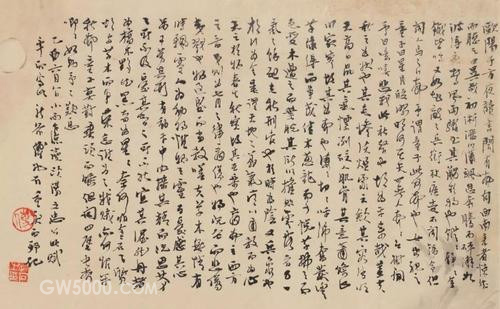 歐陽子方夜讀書聞有聲自西南來者悚然
而聽之曰異哉初淅瀝以蕭颯忽奔騰而砰湃如
波濤夜驚風雨驟至其觸於物也鏦鏦錚錚金
鐵皆鳴又如赴敵之兵銜枚疾走不聞號令但
聞人馬之行聲予謂童子此何聲也汝出視之
童子曰星月皎潔明河在天四無人聲聲在樹間
予曰噫嘻悲哉此秋聲也胡為乎來哉蓋夫
秋之為狀也其色慘淡煙霏雲斂其容清明
天高日晶其氣慄冽砭人肌骨其意蕭條山
川寂寥故其為聲也淒淒切切呼號奮發豐
草綠縟而爭茂佳木蔥蘢而可悅草拂之而
色變木遭之而葉脫其所以摧敗零落者乃一
氣之餘烈夫秋刑官也於時為陰又兵象也
於行為金是謂天地之義氣常以肅殺而為心
天之於物春生秋實故其在樂也商聲主西方
之音夷則為七月之律商傷也物既老而悲傷
夷戮也物過盛而當殺嗟夫草木無情有
時飄零人為動物惟物之靈百憂感其心
萬事勞其形有動于中必搖其精而況思其力
之所不及憂其智之所不能宜其渥然丹者
為槁木黟然黑者為星星奈何非金石之質
欲與草木而爭榮念誰為之戕賊亦何恨乎
秋聲童子莫對垂頭而睡但聞四壁蟲聲
唧唧如助予之歎息
六月
記
GW5000.com